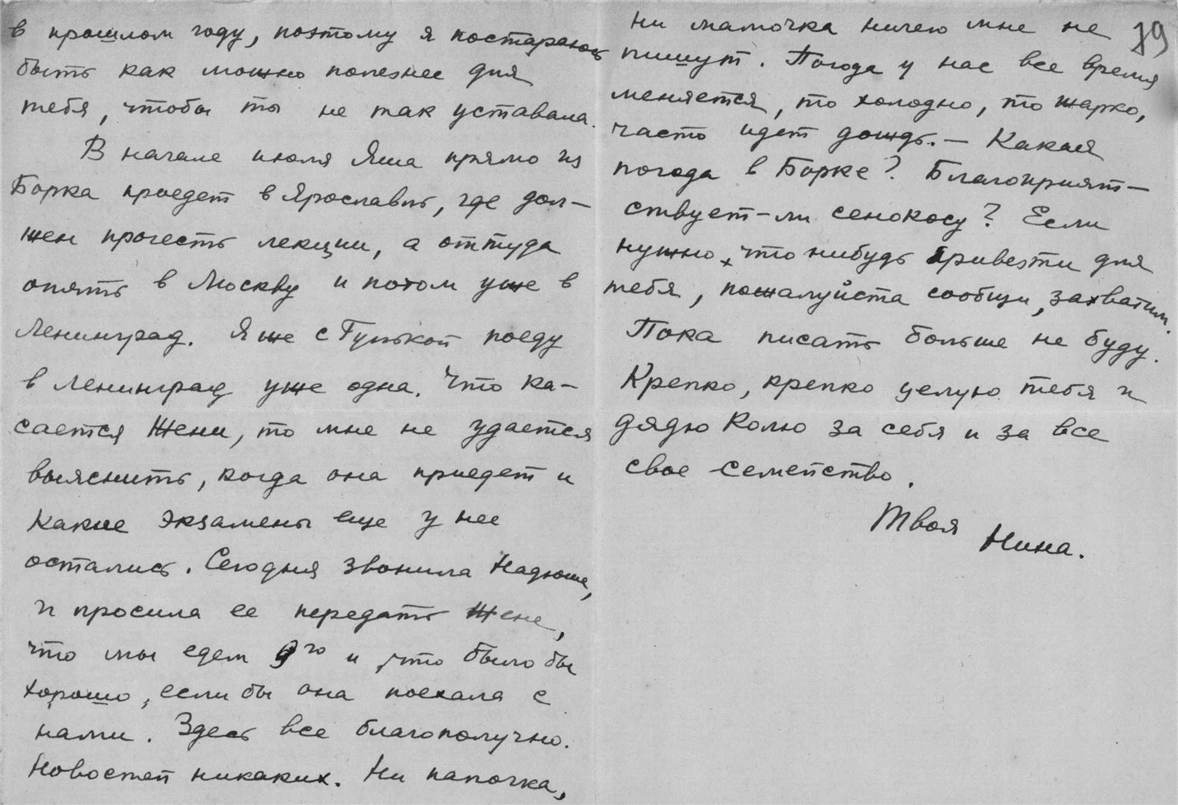 в прошлом году, поэтому я постараюсь
быть как можно полезнее для
тебя, чтобы ты не так уставала.
В начале июля Яша прямо из
Борка проедет в Ярославль, где дол-
жен прочесть лекции, а оттуда
опять в Москву и потом уже в
Ленинград. Я же с Гулькой поеду
в Ленинград уже одна. Что ка-
сается Жени, то мне не удается
выяснить, когда она приедет и
какие экзамены еще у нее
остались. Сегодня звонила Надюше,
и просила ее передать Жене,
что мы едем 9го и что было бы
хорошо, если бы она поехала с
нами. Здесь все благополучно.
Новостей никаких. Ни папочка,
79
ни мамочка ничего мне не
пишут. Погода у нас все время
меняется, то холодно, то жарко,
часто идет дождь. — Какая
погода в Борке? Благоприят-
ствует-ли сенокосу? Если
нужно что нибудь привезти для
тебя, пожалуйста сообщи, захватим.
Пока писать больше не буду.
Крепко, крепко целую тебя и
дядю Колю за себя и за все
свое семейство.
Твоя
Нина.